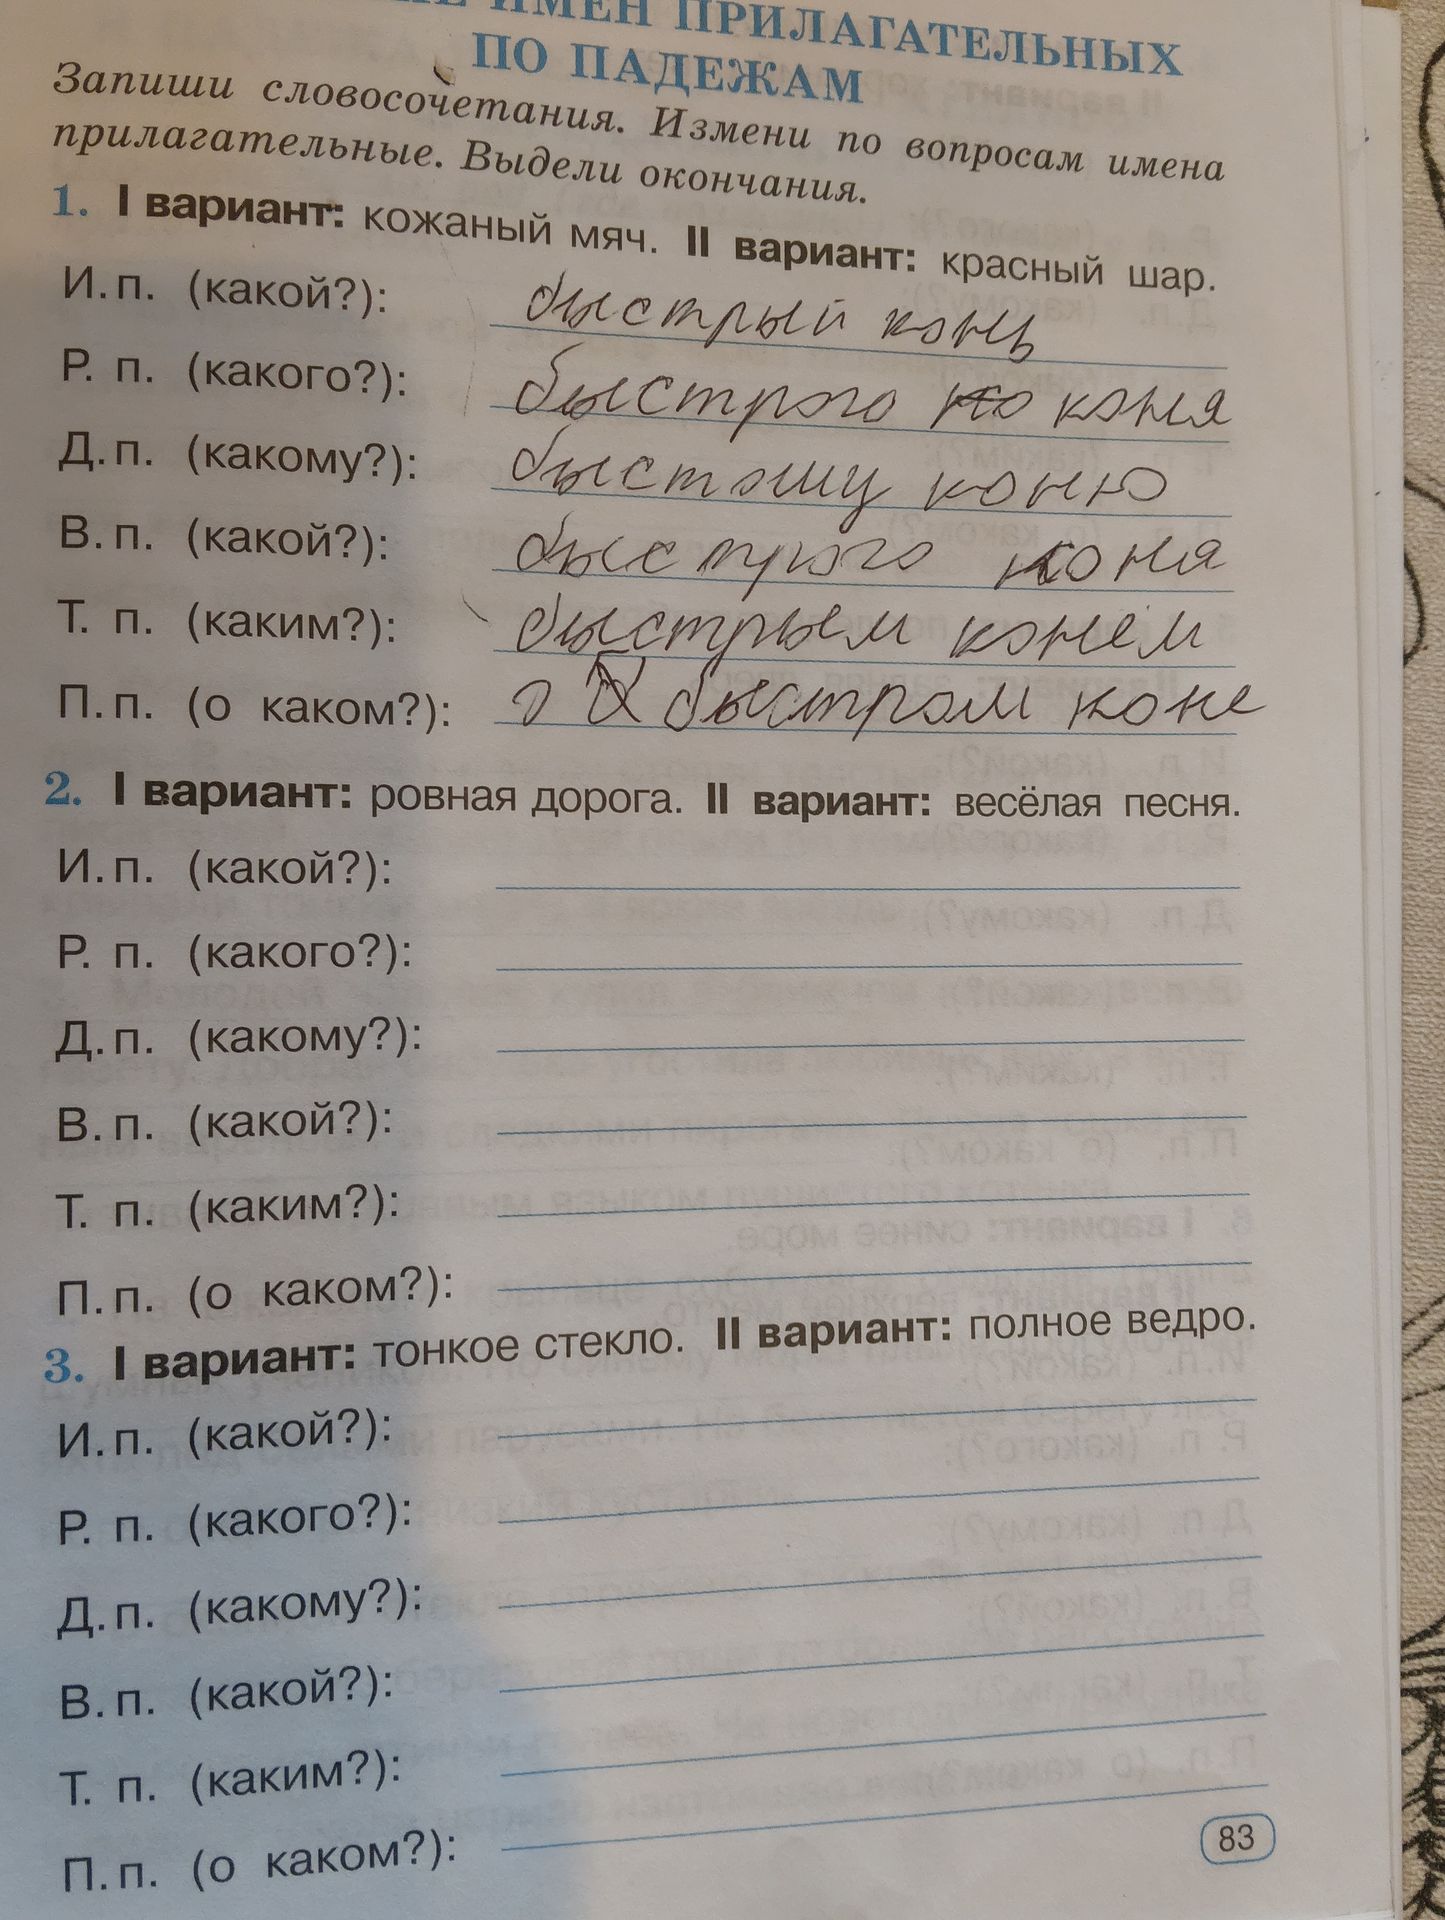 ИМЕН ПРИЛАГАТЕЛЬНЫХ
ПО ПАДЕЖАМ
Запиши словосочетания. Измени по вопросам имена
прилагательные. Выдели окончания.
1. I вариант: кожаный мяч. II вариант: красный шар.
И.п. (какой?): быстрый конь
Р. п. (какого?): быстрого ко коня
Д.п. (какому?): быстому коню
В.п. (какой?): быстрого коня
Т. п. (каким?): быстрым конём
П.п. (о каком?): о быстром коне
2. I вариант: ровная дорога. II вариант: весёлая песня.
И.п. (какой?):
Р. п. (какого?):
Д.п. (какому?):
В.п. (какой?):
Т. п. (каким?):
П.п. (о каком?):
3. I вариант: тонкое стекло. II вариант: полное ведро.
И.п. (какой?):
Р. п. (какого?):
Д.п. (какому?):
В.п. (какой?):
Т. п. (каким?):
П.п. (о каком?):
83